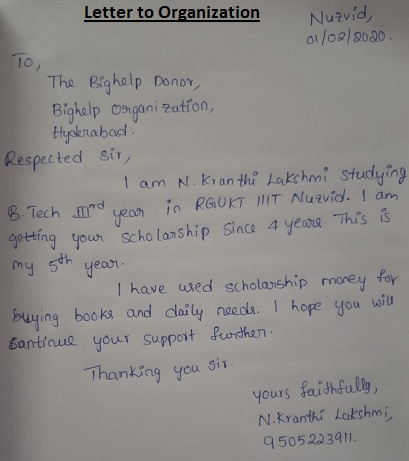 Letter to Organization
Nuzvid,
01/02/2020.
To,
The Bighelp Donor,
Bighelp Organization,
Hyderabad.
Respected Sir,
I am N. Kranthi Lakshmi studying
B. Tech IIIrd year in RGUKT IIIT Nuzvid. I am
getting your scholarship since 4 years. This is
my 5th year.
I have used scholarship money for
buying books and daily needs. I hope you will
continue your support further.
Thanking you sir.
yours faithfully,
N. Kranthi Lakshmi,
9505223911.